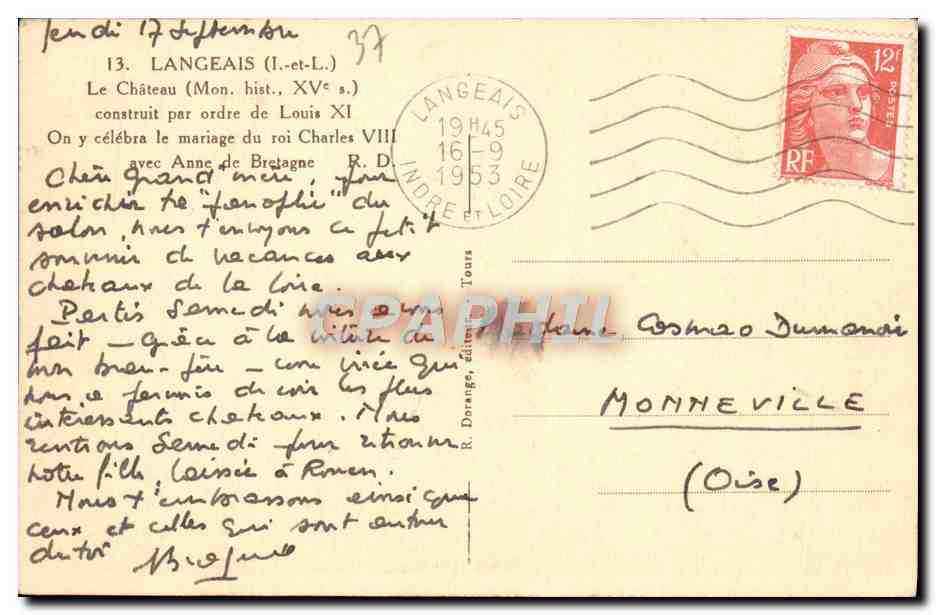 Jeudi 17 Septembre
37
13. LANGEAIS (I.-et-L.)
Le Château (Mon. hist., XVe s.)
construit par ordre de Louis XI
On y célébra le mariage du roi Charles VIII
avec Anne de Bretagne R. D.
Chère Grand'mère, pour
enrichir ta "panoplie" du
salon, nous t'envoyons ce petit
souvenir de vacances aux
chateaux de la Loire.
Partis Samedi nous avons
fait – Grâce à la
mon beau-père – une virée qui
nous a permis de voir les plus
intéressants chateaux. Nous
rentrons Samedi pour retrouver
notre fille, laissée à Rouen.
Nous t'embrassons ainsi que
ceux et celles qui sont autour
de toi
LANGEAIS
19H45
16-9
1953
INDRE ET LOIRE
12F
POSTES
RF
R. Dorange, éditeur, Tours
CPAPHIL
Madame Cosmao Dumanoir
MONNEVILLE
(Oise)